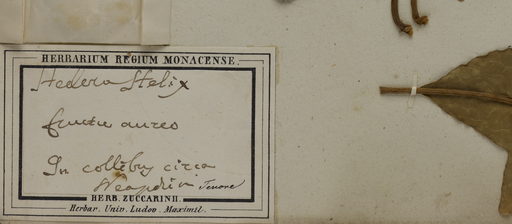 HERBARIUM REGIUM MONACENSE.
Hedera Helix
fructu aureo
In collibus circa
Neapolin Tenore
HERB. ZUCCARINII.
Herbar. Univ. Ludov. Maximil.